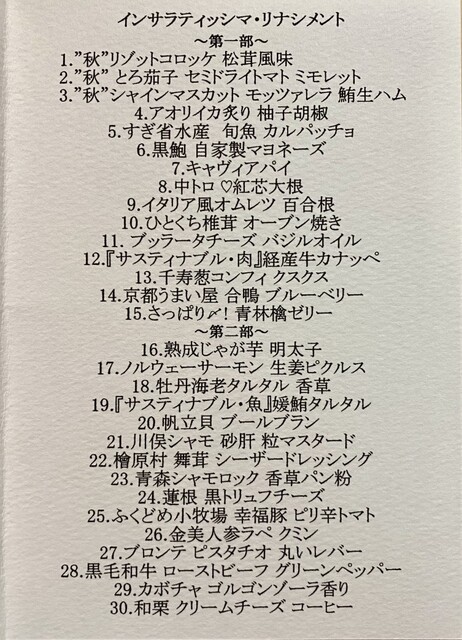 インサラティッシマ・リナシメント
～第一部～
1.”秋”リゾットコロッケ 松茸風味
2.”秋” とろ茄子 セミドライトマト ミモレット
3.”秋”シャインマスカット モッツァレラ 鮪生ハム
4.アオリイカ炙り 柚子胡椒
5.すぎ省水産 旬魚 カルパッチョ
6.黒鮑 自家製マヨネーズ
7.キャヴィアパイ
8.中トロ ♡紅芯大根
9.イタリア風オムレツ 百合根
10.ひとくち椎茸 オーブン焼き
11. ブッラータチーズ バジルオイル
12.『サスティナブル・肉』経産牛カナッペ
13.千寿葱コンフィ クスクス
14.京都うまい屋 合鴨 ブルーベリー
15.さっぱり〆! 青林檎ゼリー
～第二部～
16.熟成じゃが芋 明太子
17.ノルウェーサーモン 生姜ピクルス
18.牡丹海老タルタル 香草
19.『サスティナブル・魚』媛鮪タルタル
20.帆立貝 ブールブラン
21.川俣シャモ 砂肝 粒マスタード
22.檜原村 舞茸 シーザードレッシング
23.青森シャモロック 香草パン粉
24.蓮根 黒トリュフチーズ
25.ふくどめ小牧場 幸福豚 ピリ辛トマト
26.金美人参ラペ クミン
27.ブロンテ ピスタチオ 丸いレバー
28.黒毛和牛 ローストビーフ グリーンペッパー
29.カボチャ ゴルゴンゾーラ香り
30.和栗 クリームチーズ コーヒー